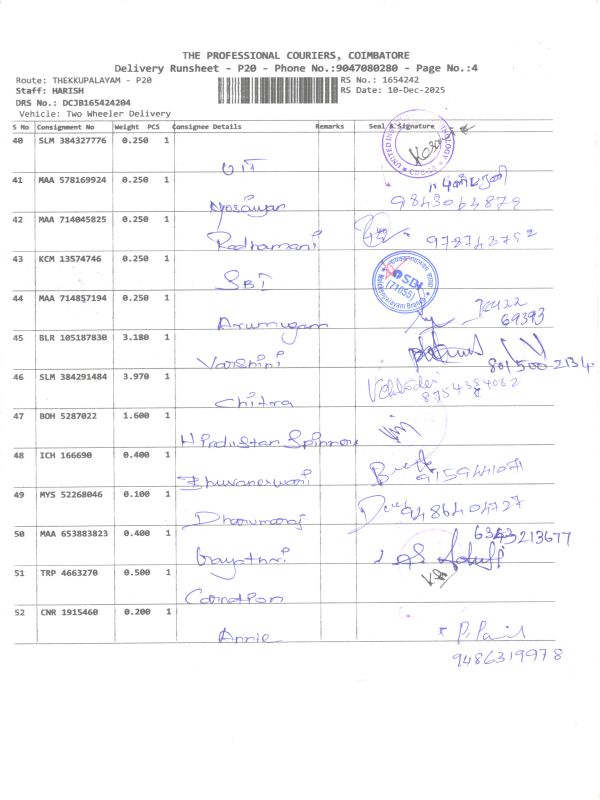 THE PROFESSIONAL COURIERS, COIMBATORE
Delivery Runsheet - P20 - Phone No.:9047080280 - Page No.:4
Route: THEKKUPALAYAM - P20 RS No.: 1654242
Staff: HARISH RS Date: 10-Dec-2025
DRS No.: DCJB165424204
Vehicle: Two Wheeler Delivery
S No Consignment No Weight PCS Consignee Details Remarks Seal & Signature
40 SLM 384327776 0.250 1
UIT
41 MAA 578169924 0.250 1
9843064879
42 MAA 714045825 0.250 1
Radhamani
43 KCM 13574746 0.250 1
SBI SBI (71055)
44 MAA 714857194 0.250 1
Arumugam 69393
45 BLR 105187830 3.180 1
Varshini 801500 2134
46 SLM 384291484 3.970 1
Chitra 8754384062
47 BOH 5287022 1.600 1
Hindustan Spinners
48 ICH 166690 0.400 1
Bhuvaneswari 9159441071
49 MYS 52268046 0.100 1
Dharumaraj 9486404727
50 MAA 653883823 0.400 1 6363213677
Gayathri
51 TRP 4663270 0.500 1
52 CNR 1915460 0.200 1
Annie
9486319978